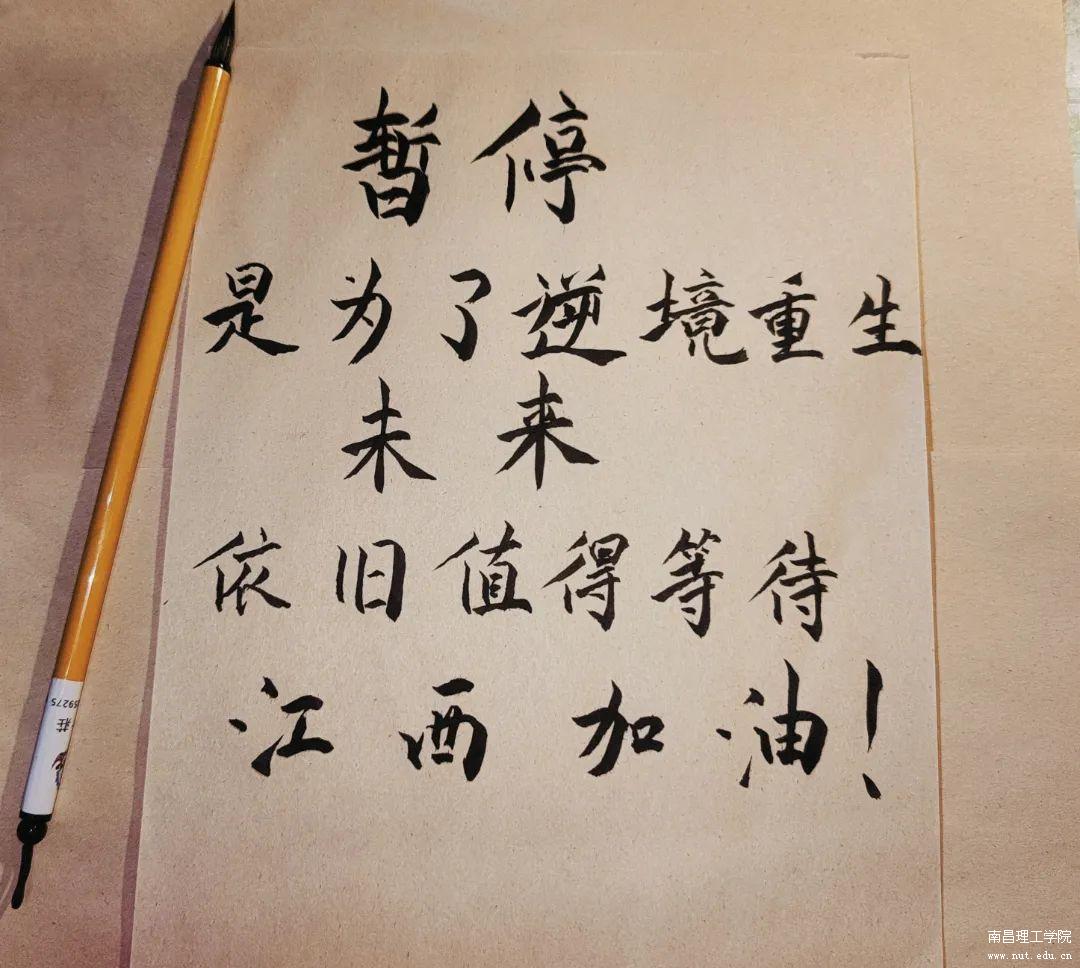 暂停
是为了逆境重生
未来
依旧值得等待
江西加油！
59275
莊
南昌理工学院
www.nut.edu.cn